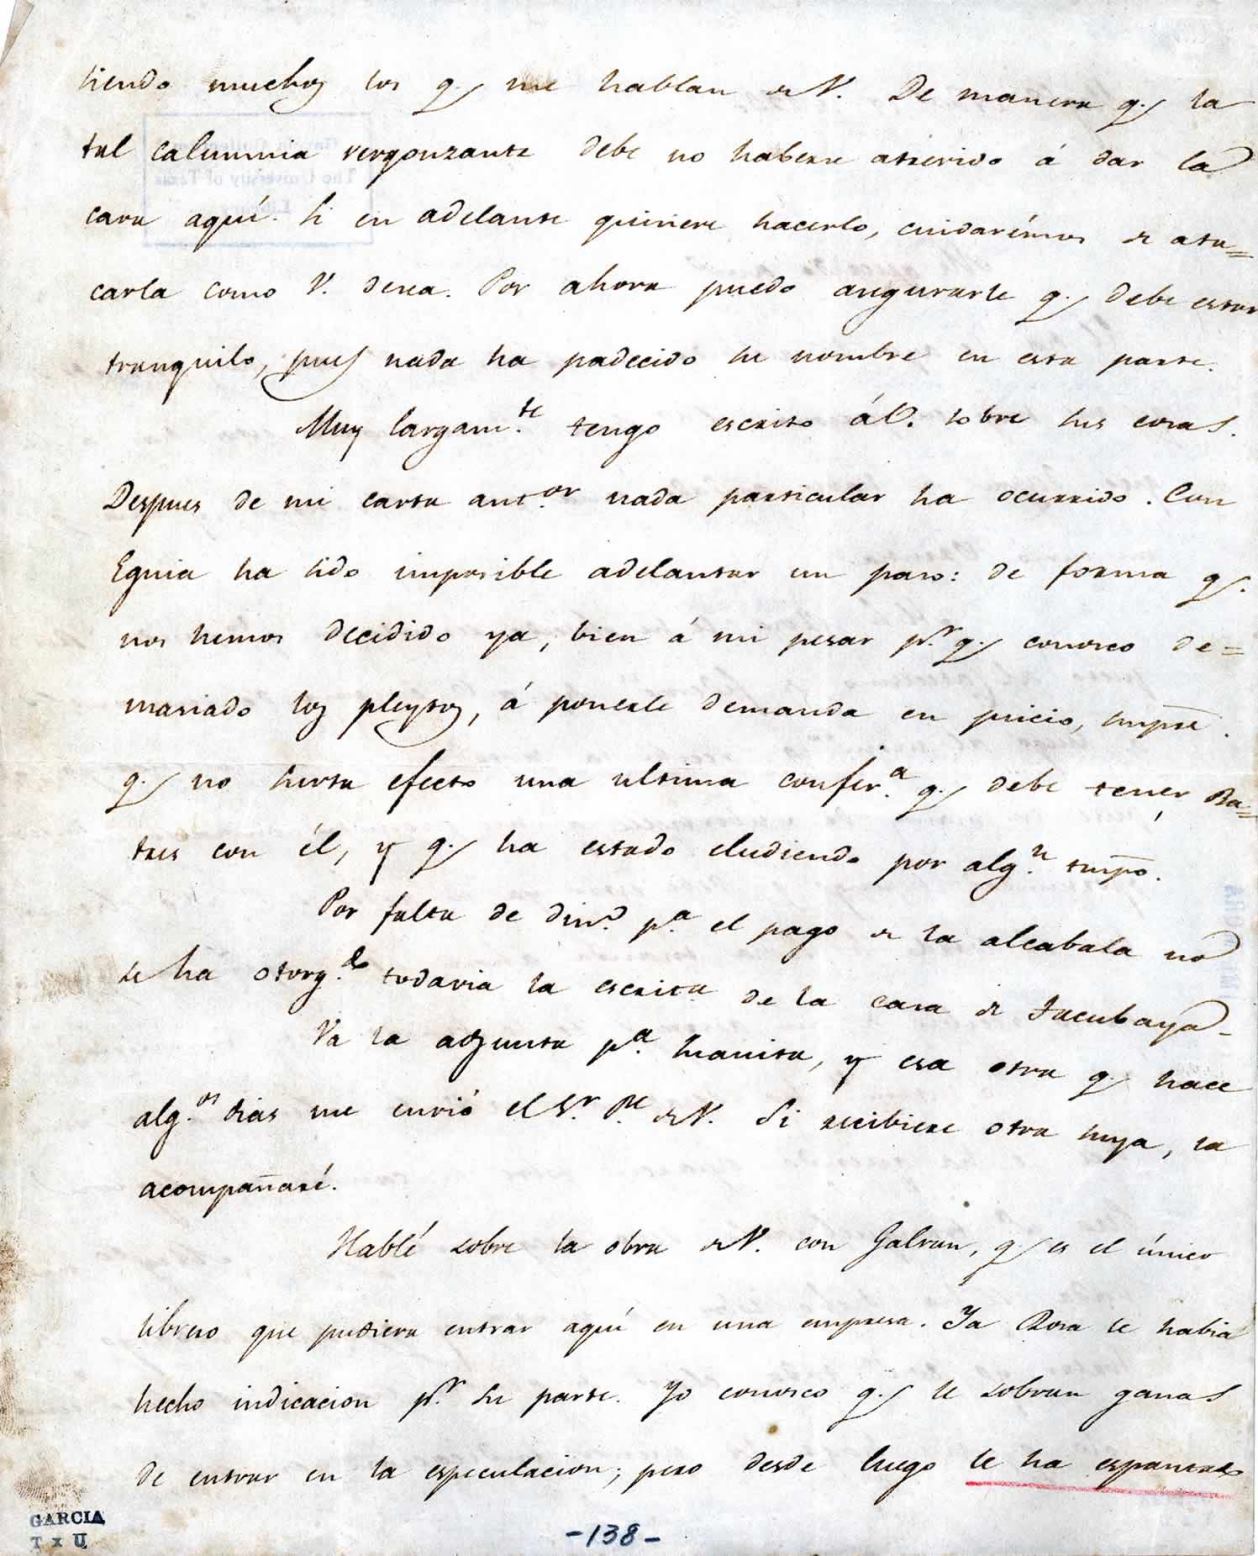 siendo muchos los q.e me hablan de V. De manera q.e la
tal calumnia vergonzante debe no haberse atrevido á dar la
cara aquí. Si en adelante quisiere hacerlo, cuidarémos de ata=
carla como V. desea. Por ahora puedo asegurarle q.e debe estar
tranquilo, pues nada ha padecido su nombre en esta parte.
Muy largam.te tengo escrito á V. sobre sus cosas.
Despues de mi carta ant.or nada particular ha ocurrido. Con
Eguia ha sido imposible adelantar un paso: de forma q.e
nos hemos decidido ya, bien á mi pesar p.r q.e conosco de=
masiado los pleytos, á ponerle demanda en juicio, smpre.
q.e no surta efecto una ultima confer.a q.e debe tener Ba=
tres con él, y q.e ha estado eludiendo por alg.n tmpo.
Por falta de din.o p.a el pago de la alcabala no
se ha otorg.do todavia la escrita de la casa de Tacubaya.
Va la adjunta p.a Juanita, y esa otra q.e hace
alg.os dias me envió el S.r P.e de V. Si recibiere otra suya, la
acompañaré.
Hablé sobre la obra de V. con Galvan, q.e es el único
librero que pudiera entrar aquí en una empresa. Ya Rosa le habia
hecho indicacion p.r su parte. Yo conosco q.e le sobran ganas
de entrar en la especulacion; pero desde luego le ha espantado
-138-
GARCIA
T x U